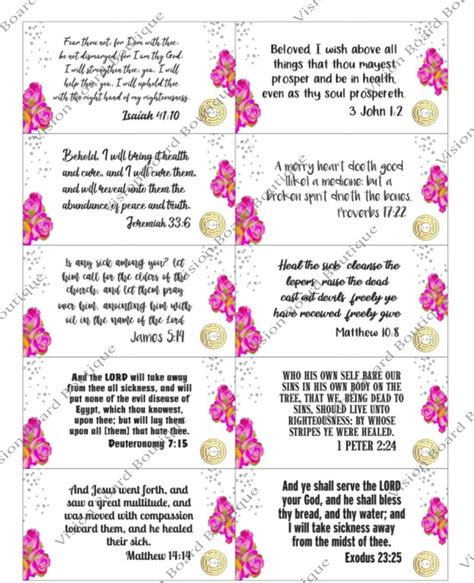 Fear thou not; for I am with thee:
be not dismayed; for I am thy God:
I will strengthen thee; yea, I will
help thee; yea, I will uphold thee
with the right hand of my righteousness.
Isaiah 41:10
Beloved, I wish above all
things that thou mayest
prosper and be in health,
even as thy soul prospereth.
3 John 1:2
Behold, I will bring it health
and cure, and I will cure them,
and will reveal unto them the
abundance of peace and truth.
Jeremiah 33:6
A merry heart doeth good
like a medicine: but a
broken spirit drieth the bones.
Proverbs 17:22
Is any sick among you? let
him call for the elders of the
church; and let them pray
over him, anointing him with
oil in the name of the Lord
James 5:14
Heal the sick, cleanse the
lepers, raise the dead,
cast out devils: freely ye
have received, freely give
Matthew 10:8
And the LORD will take away
from thee all sickness, and will
put none of the evil disease of
Egypt, which thou knowest,
upon thee; but will lay them
upon all [them] that hate thee.
Deuteronomy 7:15
WHO HIS OWN SELF BARE OUR
SINS IN HIS OWN BODY ON THE
TREE, THAT WE, BEING DEAD TO
SINS, SHOULD LIVE UNTO
RIGHTEOUSNESS: BY WHOSE
STRIPES YE WERE HEALED.
1 PETER 2:24
And Jesus went forth, and
saw a great multitude, and
was moved with compassion
toward them, and he healed
their sick.
Matthew 14:14
And ye shall serve the LORD
your God, and he shall bless
thy bread, and thy water; and
I will take sickness away
from the midst of thee.
Exodus 23:25
Vision Board Boutique